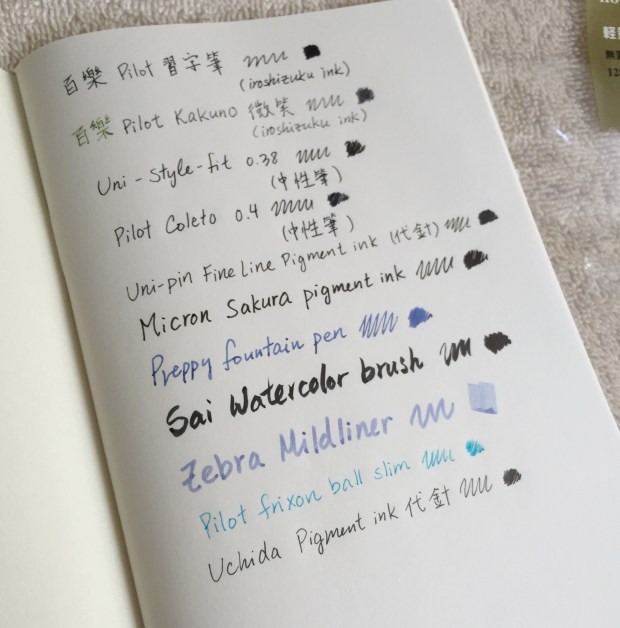 百樂 Pilot 習字筆
(iroshizuku ink)
百樂 Pilot Kakuno 微笑
(iroshizuku ink)
Uni-Style-fit 0.38
(中性筆)
Pilot Coleto 0.4
(中性筆)
Uni-pin Fine Line Pigment ink (代針)
Micron Sakura pigment ink
Preppy fountain pen
Sai Watercolor brush
Zebra Mildliner
Pilot frixon ball slim
Uchida Pigment ink 代針